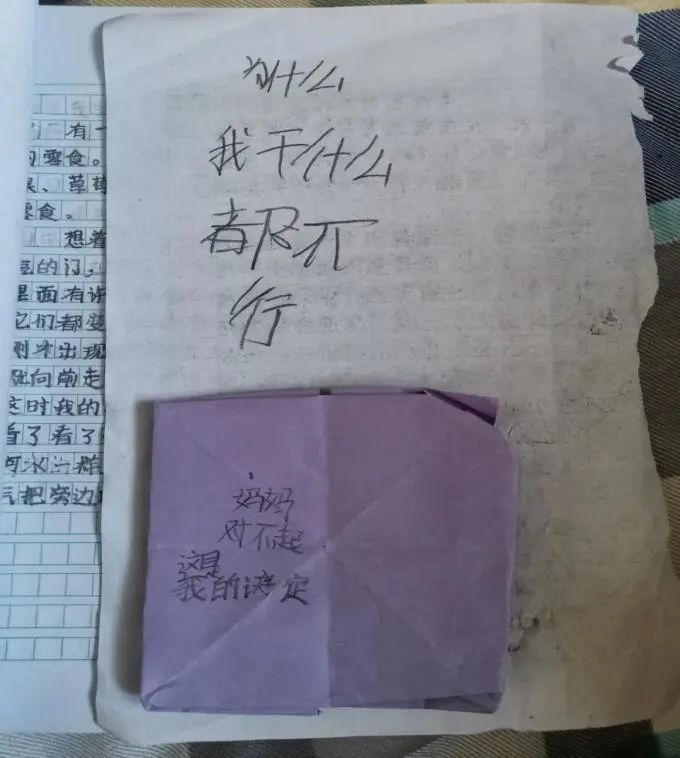 有一
零食。
、草莓
零食。
想着
的门，
里面有许
它们都变
刚才出现
向前走
这时我的
看了看了
气把旁边
为什么
我干什么
都不
行
妈妈
对不起
这是
我的决定